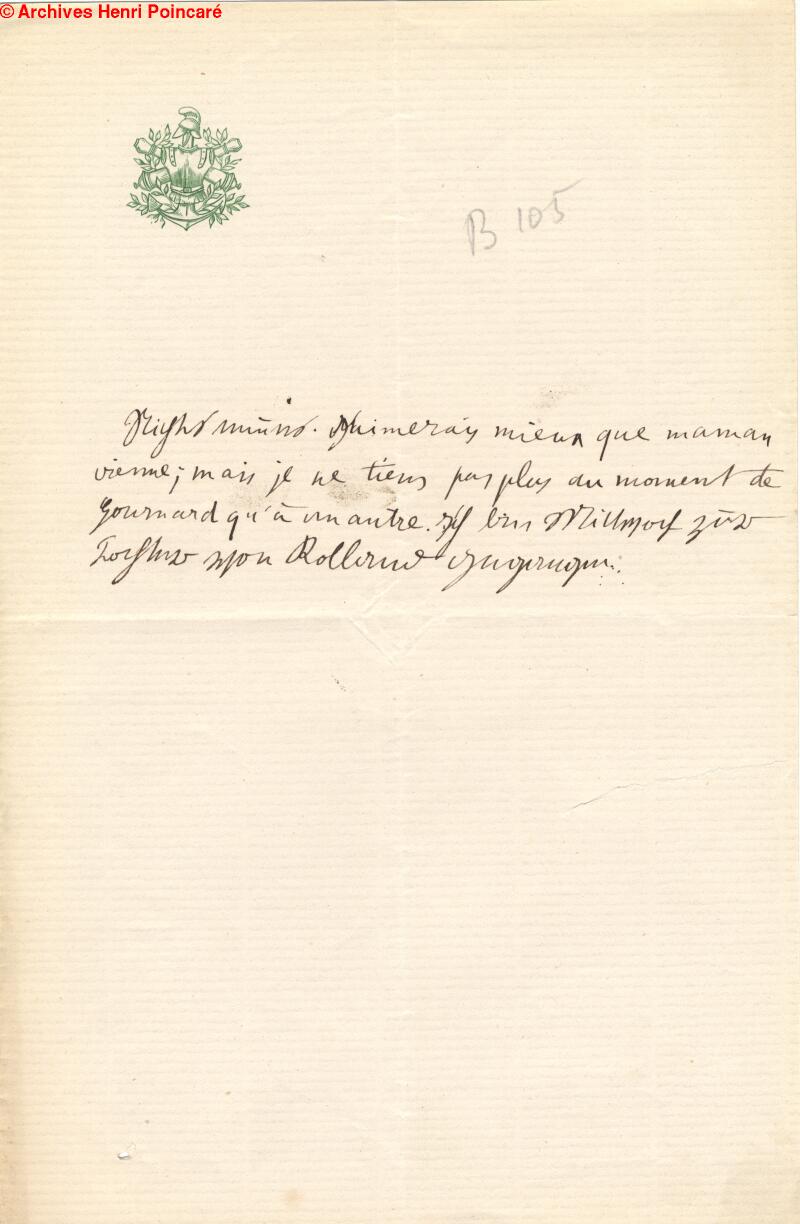 © Archives Henri Poincaré
B 105
Nichts neues. J'aimerais mieux que maman
vienne; mais je ne tiens pas plus au moment de
Gournard qu'à un autre. Ich bin Mittwoch zur
Tochter von Rolland gegangen.